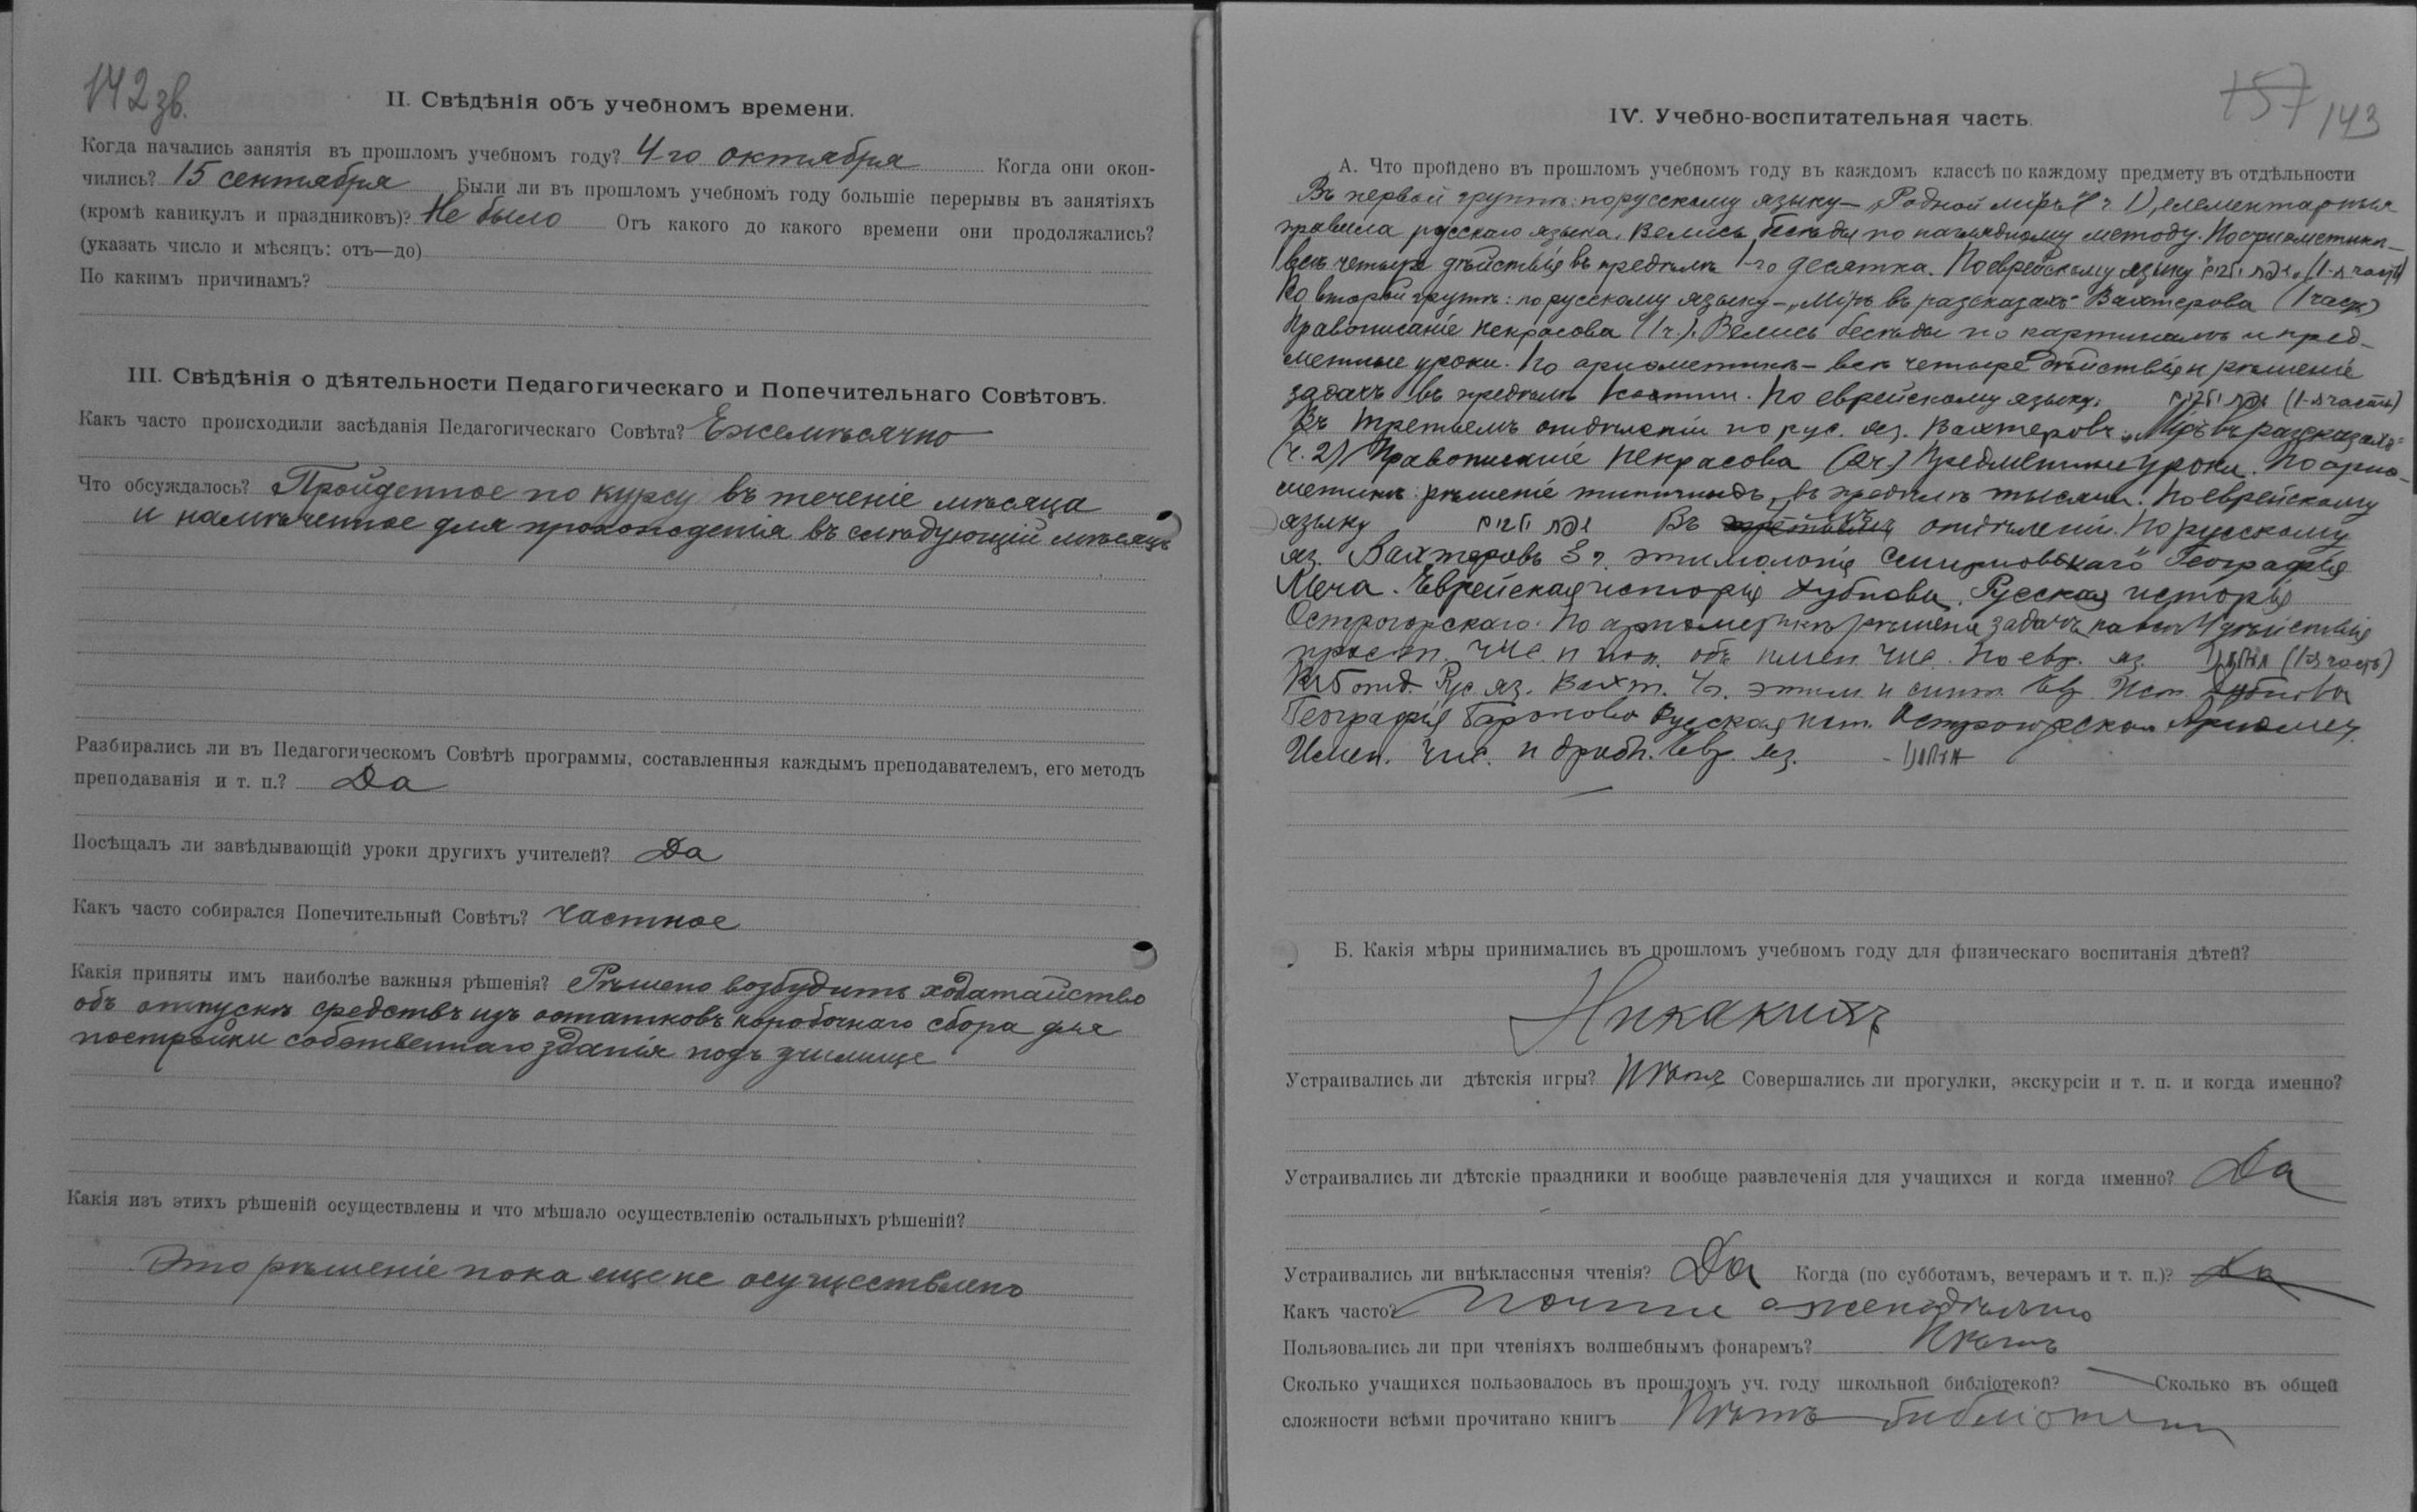 142 зв.
II. Свѣдѣнія объ учебномъ времени.
Когда начались занятія въ прошломъ учебномъ году? 4-го октября Когда они окон-
чились? 15 сентября Были ли въ прошломъ учебномъ году большіе перерывы въ занятіяхъ
(кромѣ каникулъ и праздниковъ)? Не было Отъ какого до какого времени они продолжались?
(указать число и мѣсяцъ: отъ—до)
По какимъ причинамъ?
III. Свѣдѣнія о дѣятельности Педагогическаго и Попечительнаго Совѣтовъ.
Какъ часто происходили засѣданія Педагогическаго Совѣта? Ежемѣсячно
Что обсуждалось? Пройденное по курсу въ теченіе мѣсяца
и намѣченное для прохожденія въ слѣдующій мѣсяцъ
Разбирались ли въ Педагогическомъ Совѣтѣ программы, составленныя каждымъ преподавателемъ, его методъ
преподаванія и т. п.? Да
Посѣщалъ ли завѣдывающій уроки другихъ учителей? Да
Какъ часто собирался Попечительный Совѣтъ? Частное
Какія приняты имъ наиболѣе важныя рѣшенія? Рѣшено возбудить ходатайство
объ отпускѣ средствъ изъ остатковъ коробочнаго сбора для
постройки собственнаго зданія подъ училище
Какія изъ этихъ рѣшеній осуществлены и что мѣшало осуществленію остальныхъ рѣшеній?
Это рѣшеніе пока еще не осуществлено
157 143
IV. Учебно-воспитательная часть.
А. Что пройдено въ прошломъ учебномъ году въ каждомъ классѣ по каждому предмету въ отдѣльности
Въ первой группѣ: по русскому языку — „Родной міръ" (ч 1), элементарныя
правила русскаго языка. Велись бесѣды по наглядному методу. По ариѳметикѣ —
всѣ четыре дѣйствія въ предѣлѣ 1-го десятка. По еврейскому языку (1-я часть)
Во второй группѣ: по русскому языку — „Міръ въ разсказахъ" Вахтерова (1 часть)
Правописаніе Некрасова (1 ч.). Велись бесѣды по картинамъ и пред-
метные уроки. По ариѳметикѣ — всѣ четыре дѣйствія и рѣшеніе
задачъ въ предѣлѣ сотни. По еврейскому языку: (1-я часть)
Въ третьемъ отдѣленіи по рус. яз. Вахтеровъ „Міръ въ разсказахъ"
(ч. 2) Правописаніе Некрасова (2 ч.) Предметные уроки. По ариѳ-
метикѣ: рѣшеніе типичныхъ, въ предѣлѣ тысячи. По еврейскому
языку Въ отдѣленіи. По русскому
яз. Вахтеровъ 3 ч. этимологія Смирновскаго География
Меча. Еврейская исторія Дубнова. Русская исторія
Острогорскаго. По ариѳметикѣ рѣшенія задачъ на всѣ 4 дѣйствія
прост. чис. и пон. объ имен. чис. По евр. яз. (1-я часть)
Въ 5 отд. Рус яз. Вахт. 4 ч. этим и синт. Евр. Ист. Дубнова
Географія Баронова Русская ист. Острогорскаго Ариѳмет.
Имен. чис. и дроби. Евр. яз.
Б. Какія мѣры принимались въ прошломъ учебномъ году для физическаго воспитанія дѣтей?
Никакихъ
Устраивались ли дѣтскія игры? Нѣтъ Совершались ли прогулки, экскурсіи и т. п. и когда именно?
Устраивались ли дѣтскіе праздники и вообще развлеченія для учащихся и когда именно? Да
Устраивались ли внѣклассныя чтенія? Да Когда (по субботамъ, вечерамъ и т. п.)? Да
Какъ часто? Почти еженедѣльно
Пользовались ли при чтеніяхъ волшебнымъ фонаремъ? Нѣтъ
Сколько учащихся пользовалось въ прошломъ уч. году школьной библіотекой? — Сколько въ общей
сложности всѣми прочитано книгъ Нѣтъ библіотеки